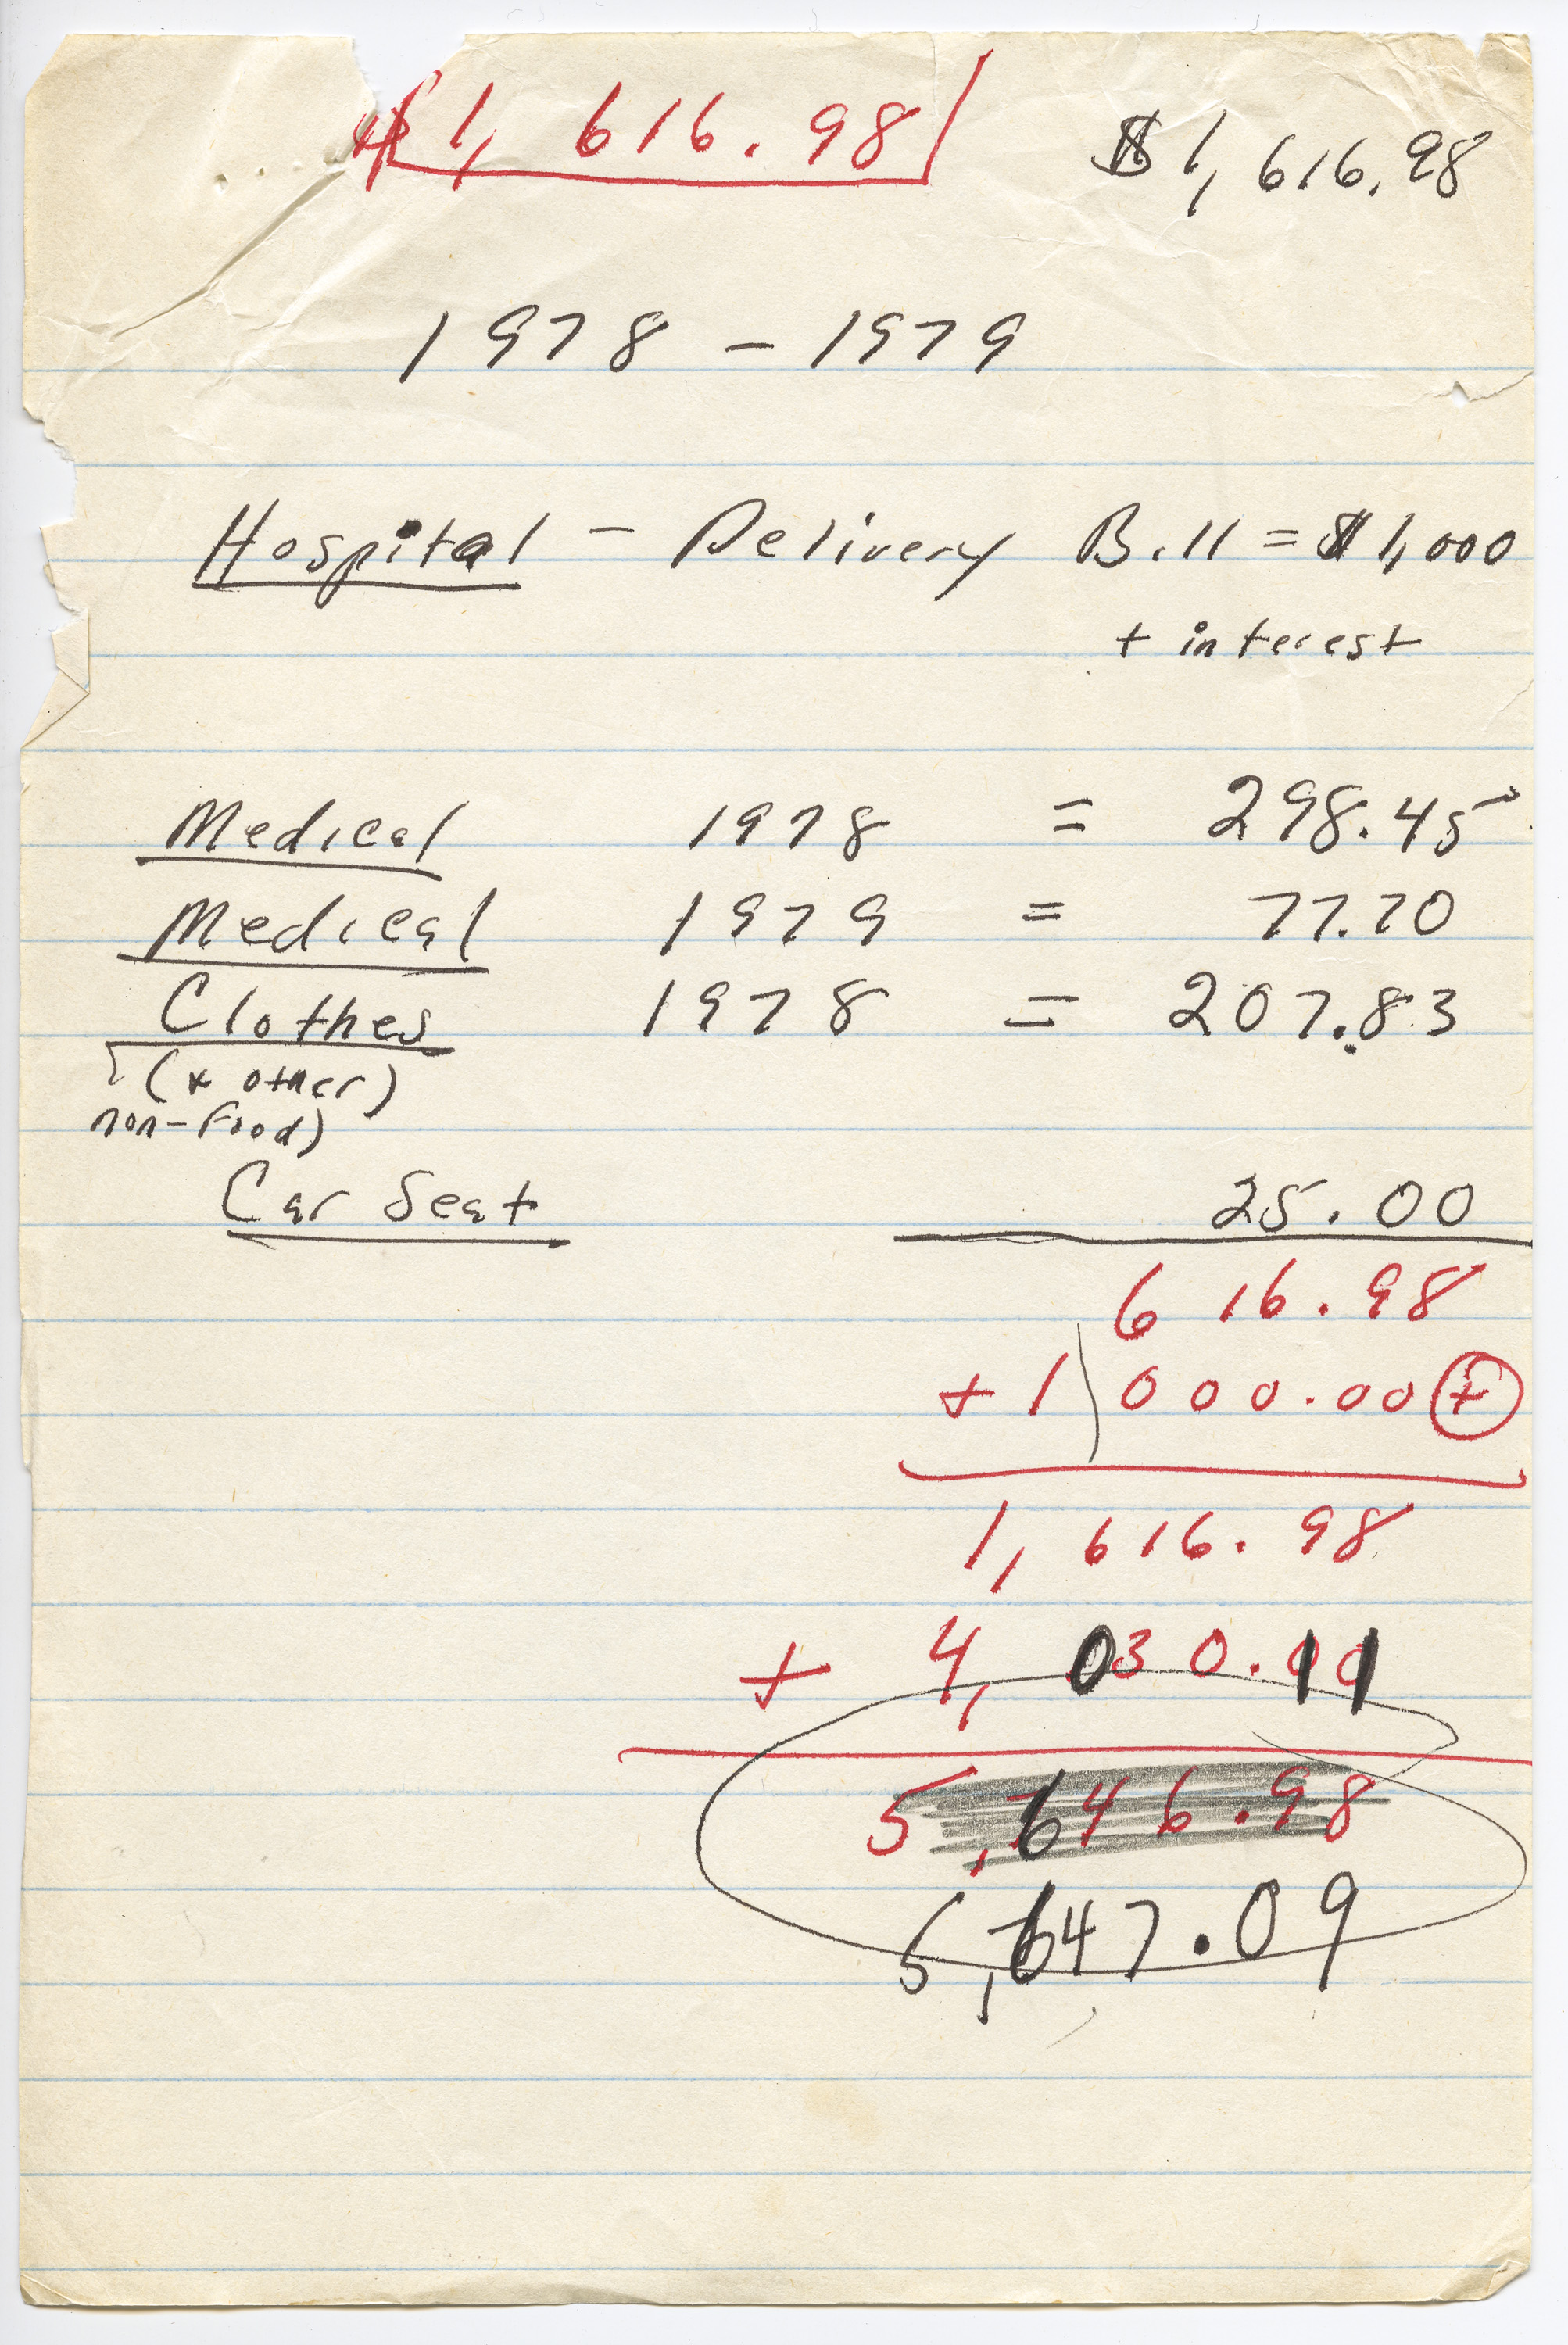 $1,616.98 $1,616.98
1978 - 1979
Hospital - Delivery Bill = $1,000
+ interest
Medical 1978 = 298.45
Medical 1979 = 77.70
Clothes 1978 = 207.83
(+ other)
non-food)
Car Seat 25.00
616.98
+ 1 000.00 +
1,616.98
+ 4,030.11
5,646.98
5,647.09